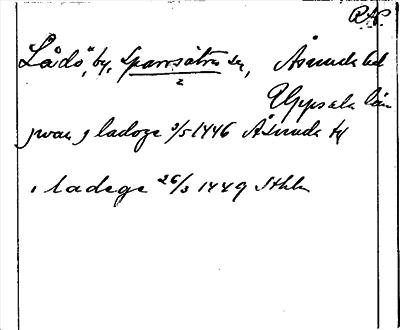 RA.
Lådö, by, Sparrsätra sn, Åsunda hd
Uppsala län
jwan j ladoge 3/5 1446 Åsunda tg
i ladege 26/3 1449 Sthlm